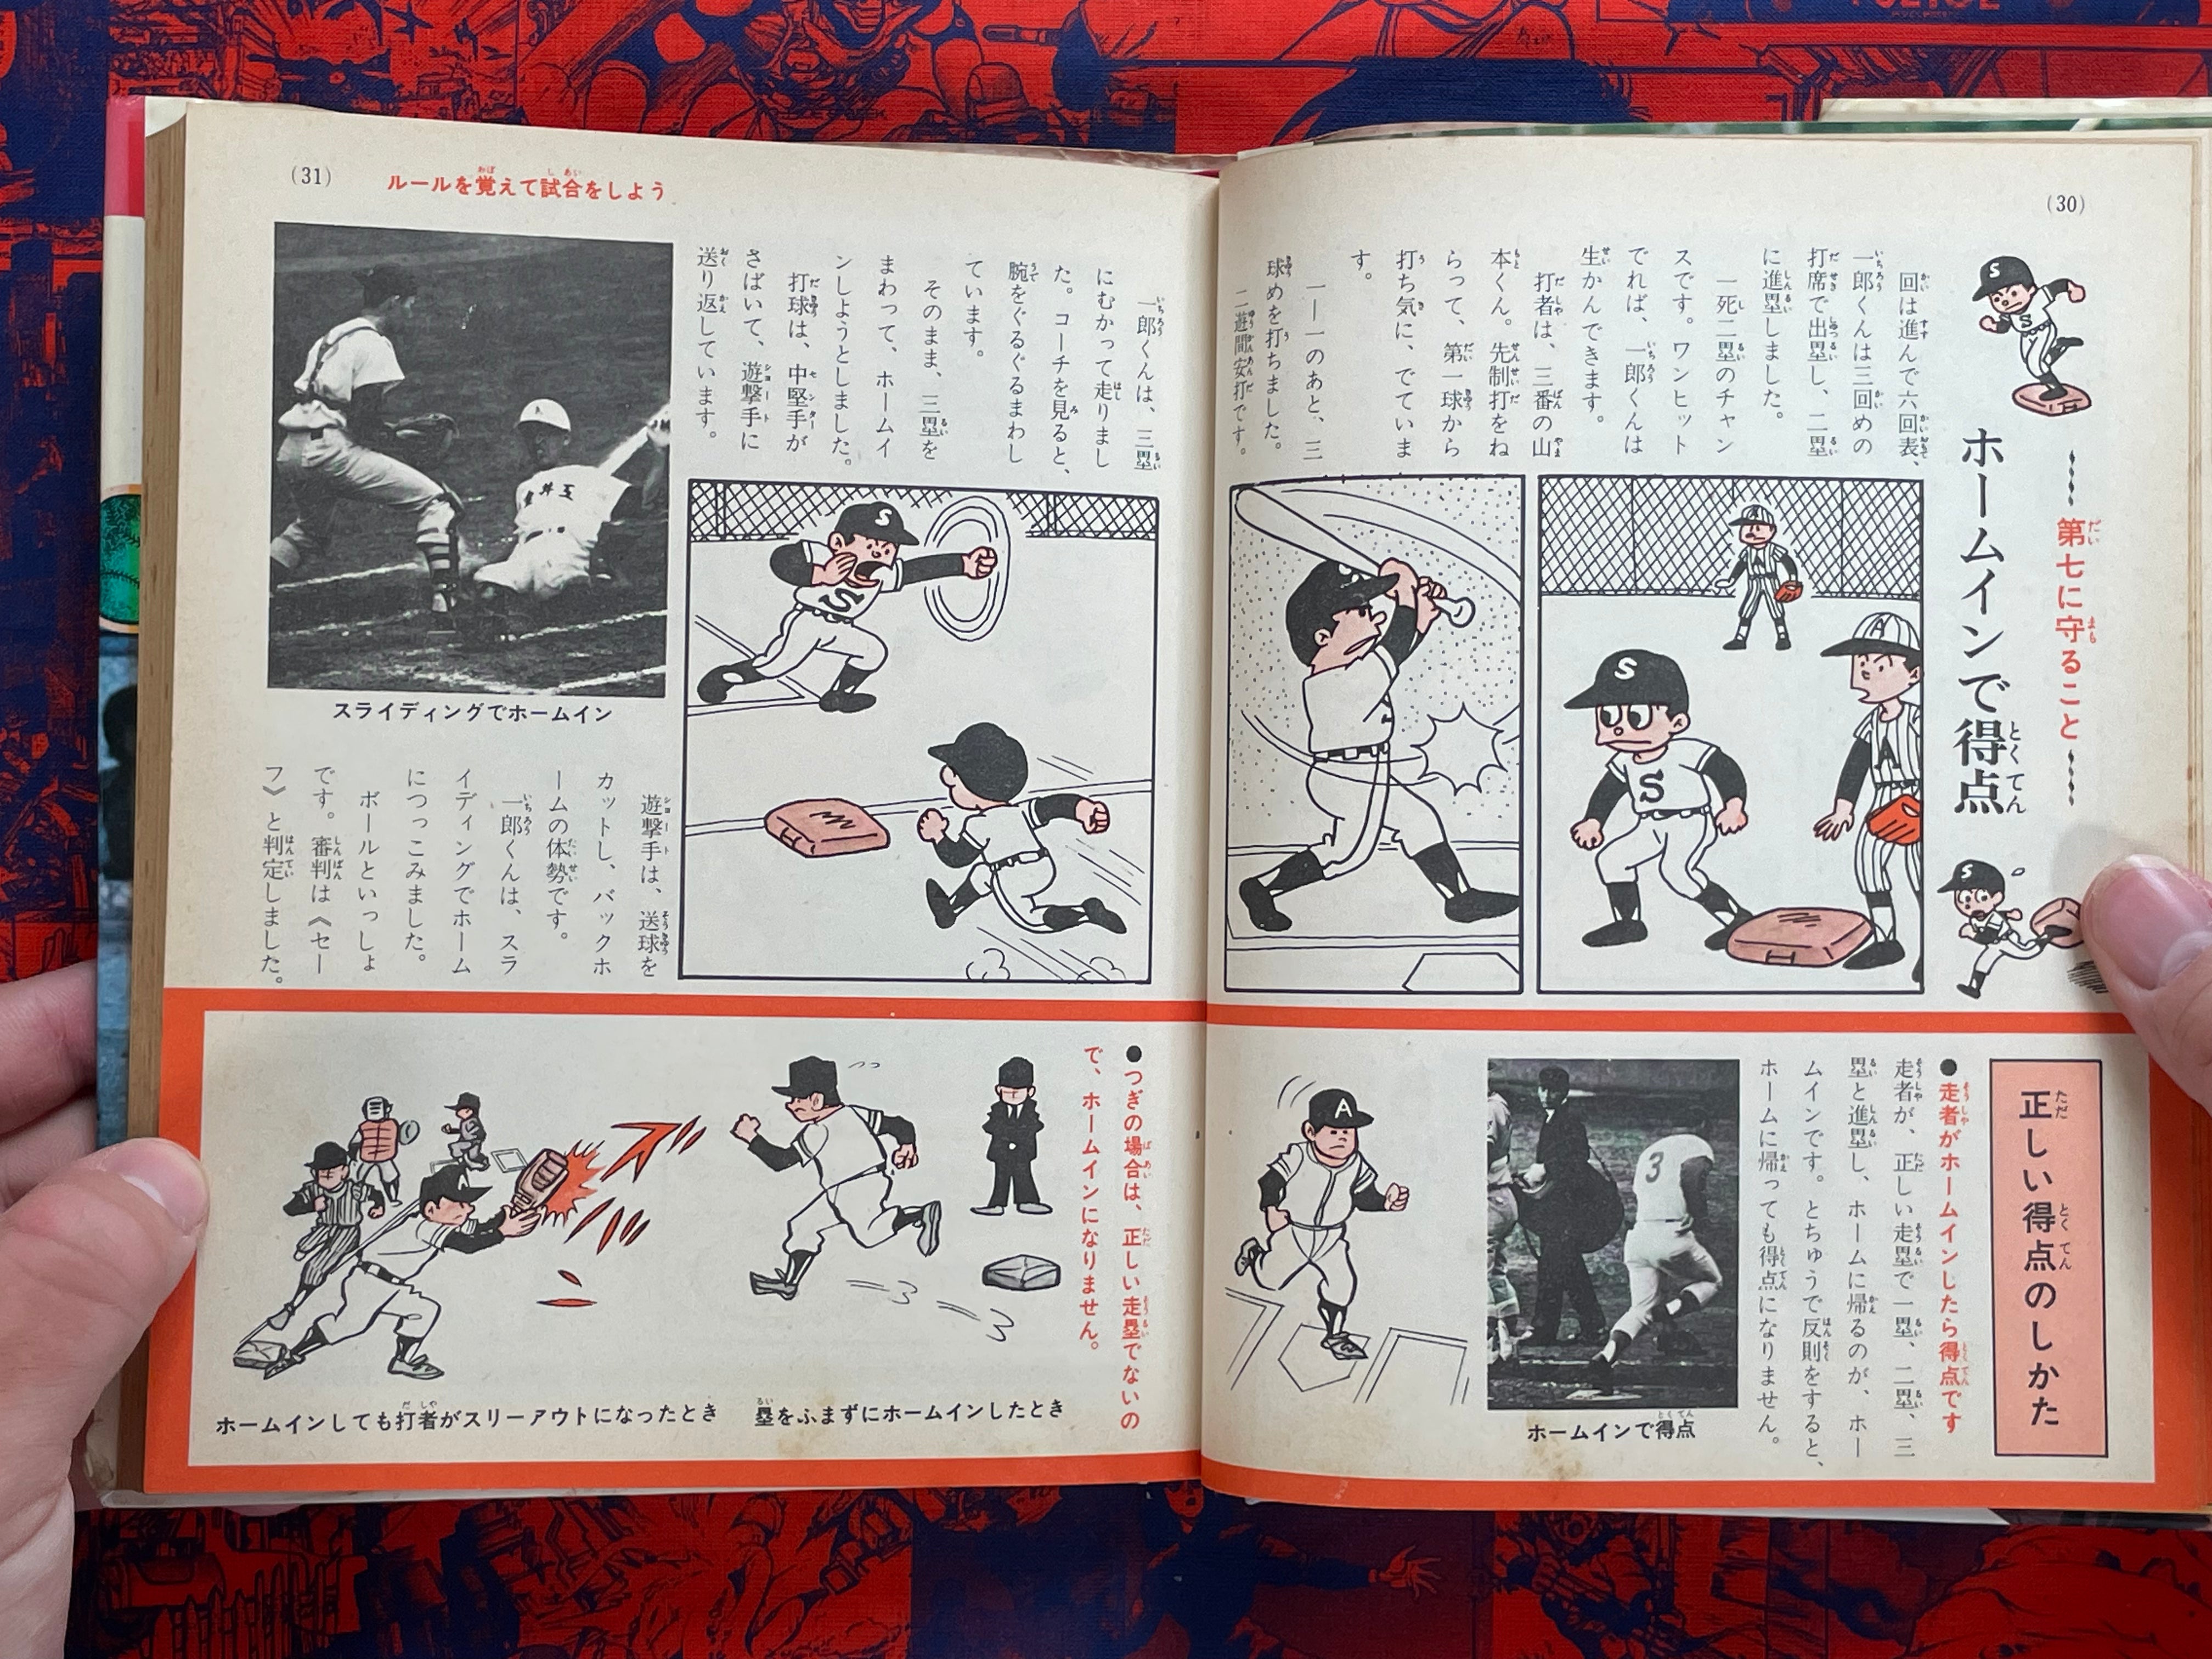 (30)
第七に守ること
ホームインで得点
回は進んで六回表、
一郎くんは三回めの
打席で出塁し、二塁
に進塁しました。
一死二塁のチャン
スです。ワンヒット
でれば、一郎くんは
生かんできます。
打者は、三番の山
本くん。先制打をね
らって、第一球から
打ち気に、でていま
す。
一―一のあと、三
球めを打ちました。
二遊間安打です。
正しい得点のしかた
●走者がホームインしたら得点です
走者が、正しい走塁で一塁、二塁、三
塁と進塁し、ホームに帰るのが、ホー
ムインです。とちゅうで反則をすると、
ホームに帰っても得点になりません。
ホームインで得点
(31)
ルールを覚えて試合をしよう
一郎くんは、三塁
にむかって走りまし
た。コーチを見ると、
腕をぐるぐるまわし
ています。
そのまま、三塁を
まわって、ホームイ
ンしようとしました。
打球は、中堅手が
さばいて、遊撃手に
送り返しています。
スライディングでホームイン
遊撃手は、送球を
カットし、バックホ
ームの体勢です。
一郎くんは、スラ
イディングでホーム
につっこみました。
ボールといっしょ
です。審判は《セー
フ》と判定しました。
●つぎの場合は、正しい走塁でないの
で、ホームインになりません。
塁をふまずにホームインしたとき
ホームインしても打者がスリーアウトになったとき
S
S
S
S
A
A
A
S
S
A
3
A